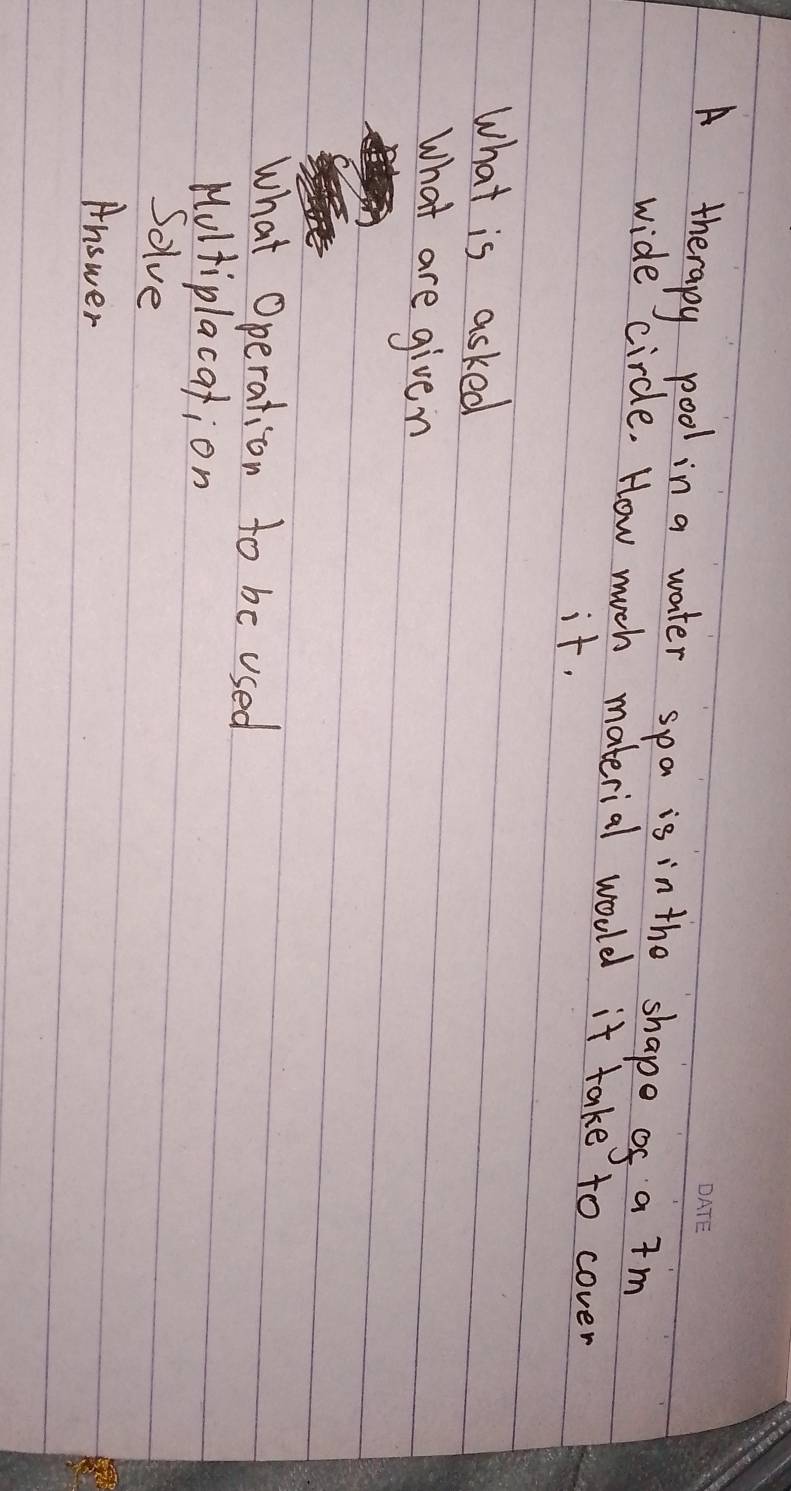 DATE
A therapy pool in a water spa is in the shape of a 7m
wide circle. How much material would it take to cover
it.
What is asked
What are given
What Operation to be used
Multiplacation
Solve
Answer